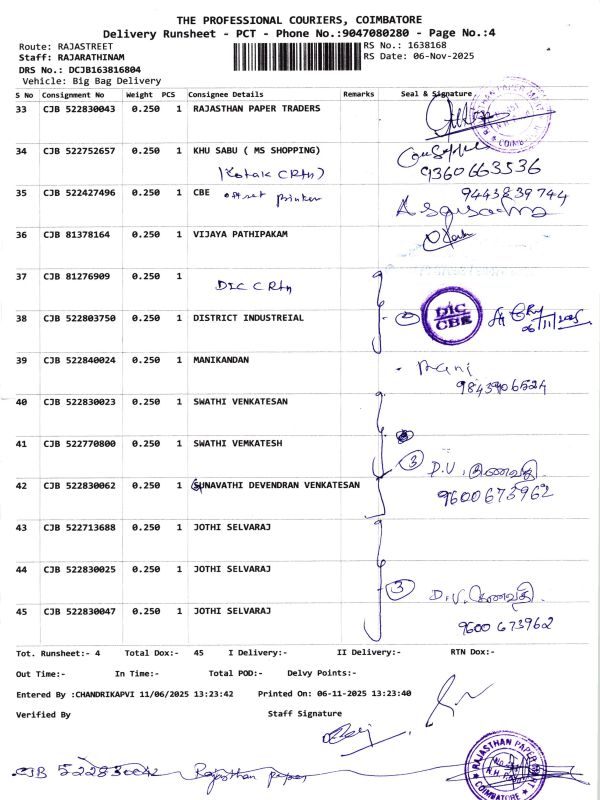 THE PROFESSIONAL COURIERS, COIMBATORE
Delivery Runsheet - PCT - Phone No.:9047080280 - Page No.:4
Route: RAJASTREET
RS No.: 1638168
Staff: RAJARATHINAM
RS Date: 06-Nov-2025
DRS No.: DCJB163816804
Vehicle: Big Bag Delivery
S No Consignment No Weight PCS Consignee Details Remarks Seal & Signature
33 CJB 522830043 0.250 1 RAJASTHAN PAPER TRADERS
34 CJB 522752657 0.250 1 KHU SABU ( MS SHOPPING)
(Kotak CRtn) 9360663536
35 CJB 522427496 0.250 1 CBE offset printer 9443839744
36 CJB 81378164 0.250 1 VIJAYA PATHIPAKAM
37 CJB 81276909 0.250 1 DIC CRtn
38 CJB 522803750 0.250 1 DISTRICT INDUSTREIAL DIC CBE 06/11/2025
39 CJB 522840024 0.250 1 MANIKANDAN Mani
9843906524
40 CJB 522830023 0.250 1 SWATHI VENKATESAN
41 CJB 522770800 0.250 1 SWATHI VEMKATESH
3 D.V.
42 CJB 522830062 0.250 1 GUNAVATHI DEVENDRAN VENKATESAN
9600673962
43 CJB 522713688 0.250 1 JOTHI SELVARAJ
44 CJB 522830025 0.250 1 JOTHI SELVARAJ
3 D.V.
45 CJB 522830047 0.250 1 JOTHI SELVARAJ
9600673962
Tot. Runsheet:- 4 Total Dox:- 45 I Delivery:- II Delivery:- RTN Dox:-
Out Time:- In Time:- Total POD:- Delvy Points:-
Entered By :CHANDRIKAPVI 11/06/2025 13:23:42 Printed On: 06-11-2025 13:23:40
Verified By Staff Signature
CJB 522830042 Rajasthan paper
RAJASTHAN PAPER
COIMBATORE